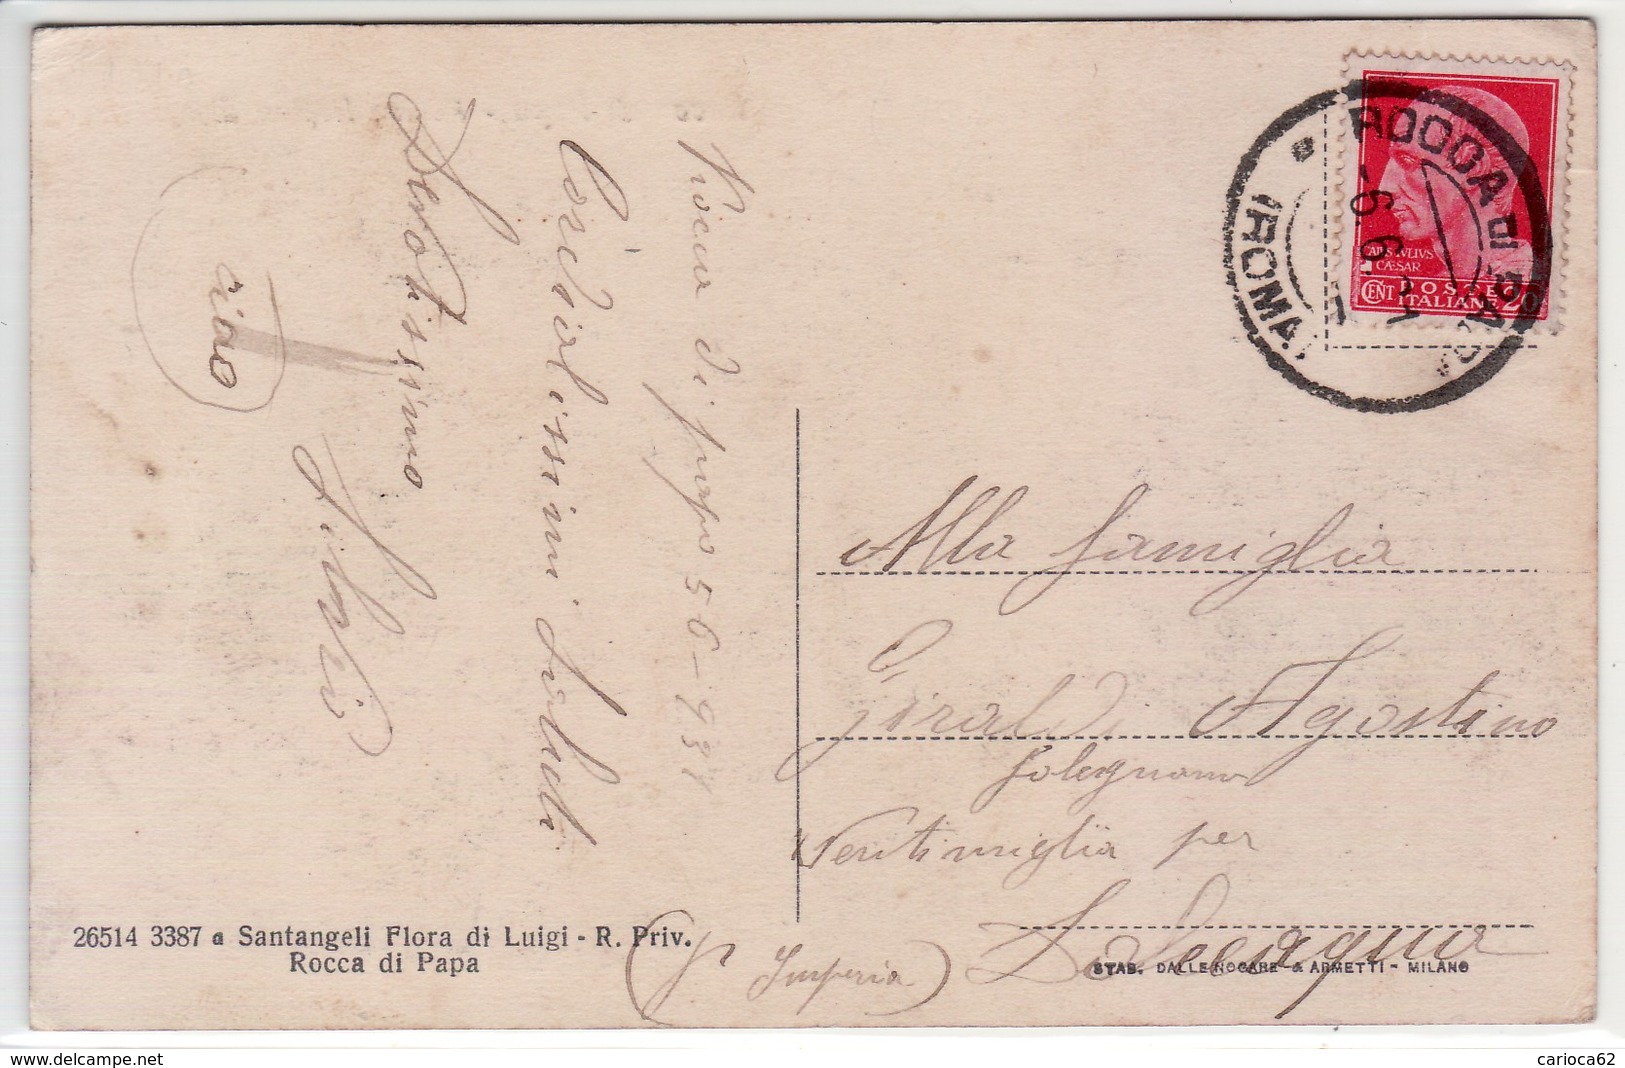 Rocca di papa 5 6-931
Cordialissimi Saluti
Devotissimo
Silvio
ciao
ROCCA DI PAPA
(ROMA)
-6 6 31
CAIVS IVLIVS
CAESAR
CENT POSTE 20
ITALIANE
Alla famiglia
Giraldi Agostino
falegname
Ventimiglia per
Dolceacqua
(P. Imperia)
26514 3387 a Santangeli Flora di Luigi - R. Priv.
Rocca di Papa
STAB. DALLE NOGARE & ARMETTI - MILANO
delcampe.net
carioca62